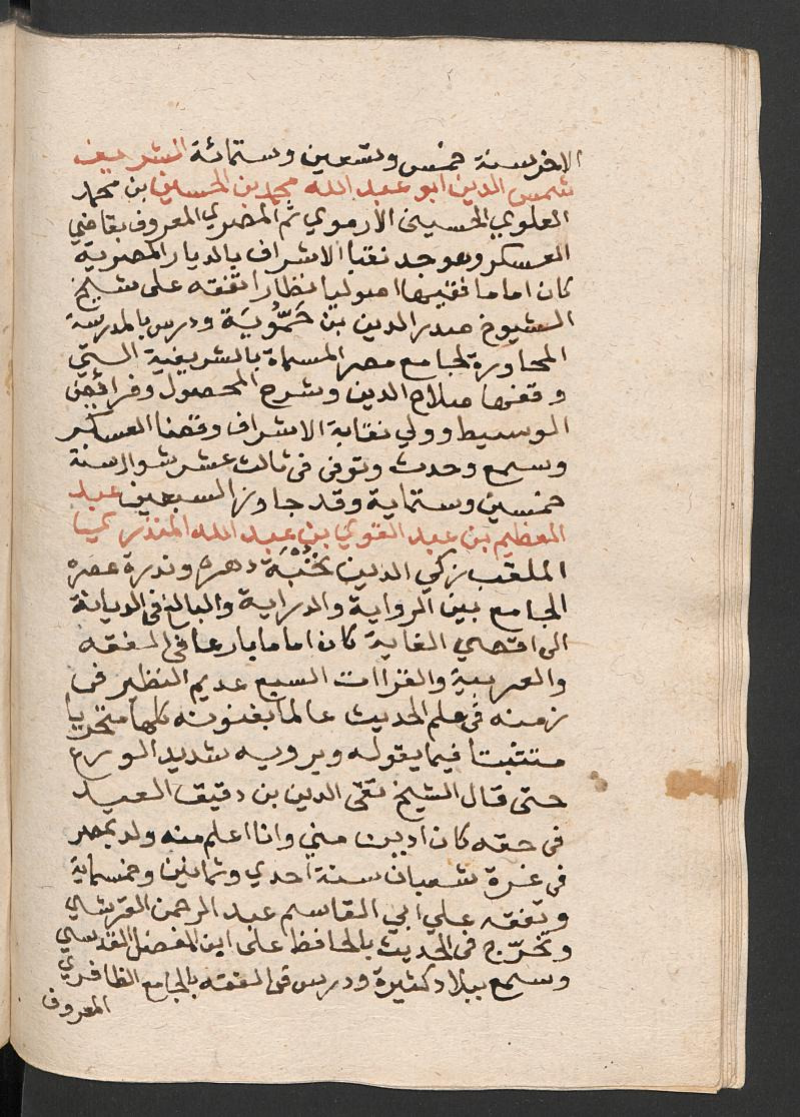 الاخر سنة خمس وتسعين وستمائة الشريف
شمس الدين ابو عبد الله محمد بن الحسين بن محمد
العلوي الحسيني الارموي ثم المصري المعروف بقاضي
العسكر وهو جد نقبا الاشراف بالديار المصرية
كان اماما فقيها اصوليا نظارا تفقه على شيخ
الشيوخ صدر الدين بن حَمُّويَة ودرس بالمدرسة
المجاورة لجامع مصر المسماة بالشريفية التي
وقفها صلاح الدين وشرح المحصول وفرائض
الوسيط وولي نقابة الاشراف وقضا العسكر
وسمع وحدث وتوفى فى ثالث عشر شوال سنة
خمسين وستماية وقد جاوز السبعين عبد
العظيم بن عبد القوي بن عبد الله المنذري
الملقب زكي الدين نُخْبَة دهره وندرة عصره
الجامع بين الرواية والدراية والبالغ فى الديانة
الى اقصي الغاية كان اماما بارعا فى الفقه
والعربية والقراات السبع عديم النظير فى
زمنه فى علم الحديث عالما بفنونه كلها متحريا
متثبتا فيما يقوله ويرويه شديد الورع
حتى قال الشيخ تقى الدين بن دقيق العيد
فى حقه كان ادين مني وانا اعلم منه ولد بمصر
فى غرة شعبان سنة احدي وثمانين وخمسماية
وتفقه علي ابي القاسم عبد الرحمن القرشي
وتخرّج فى الحديث بالحافظ على ابن المفضل المقدسي
وسمع ببلاد كثيرة ودرس فى الفقه بالجامع الظافري
المعروف